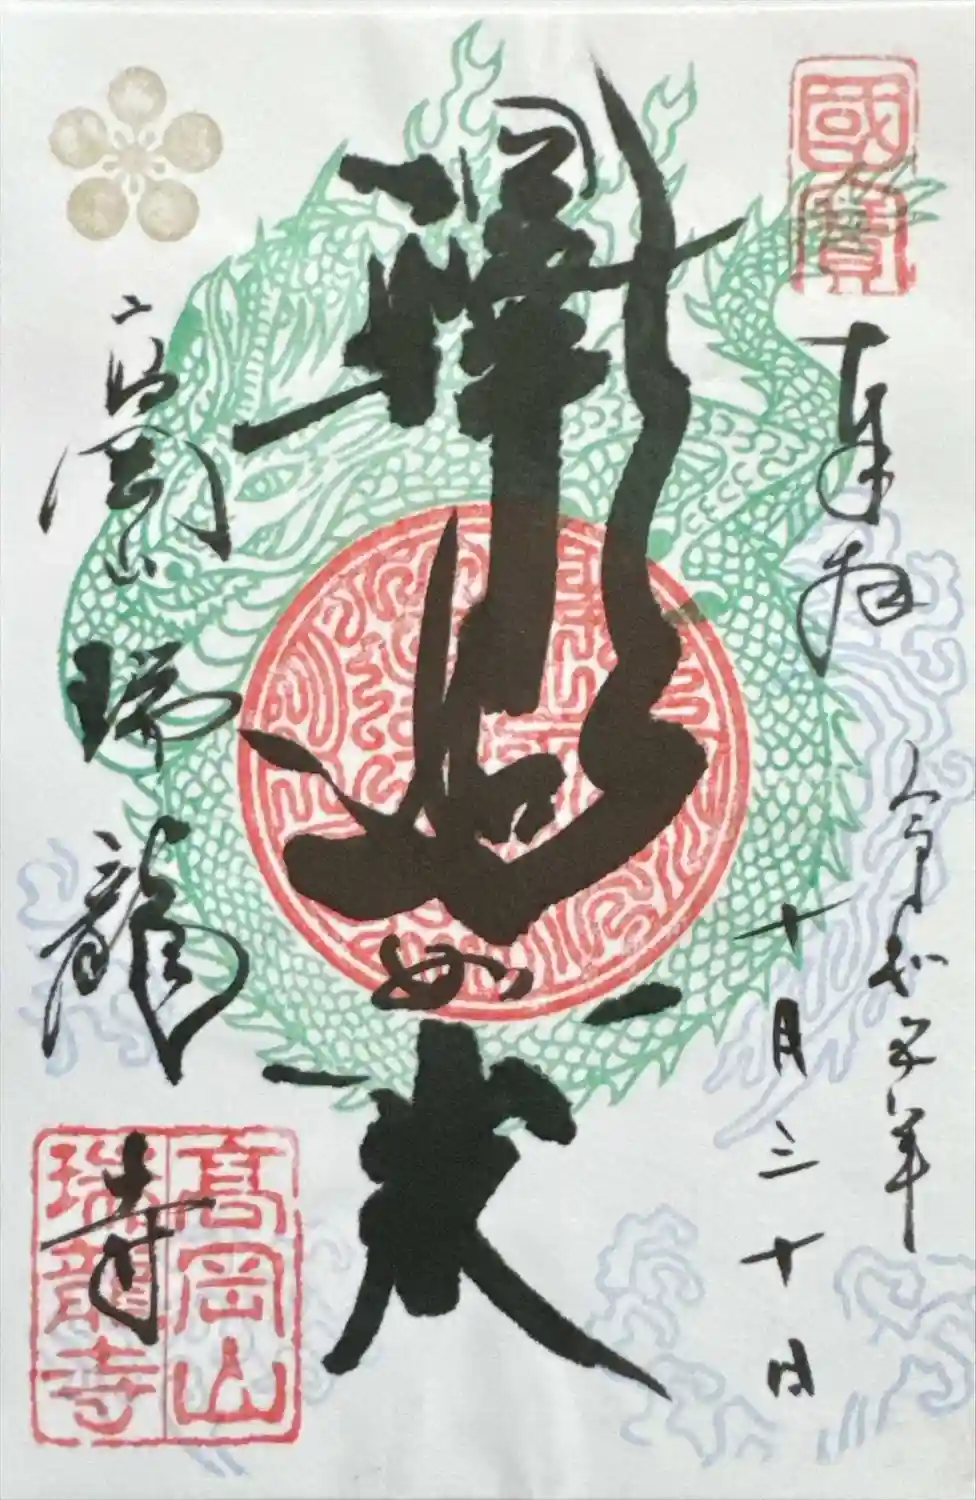 國寶
奉拝
令和五年
十月三十日
釋迦如来
高岡山
瑞龍寺
髙岡山
瑞龍寺